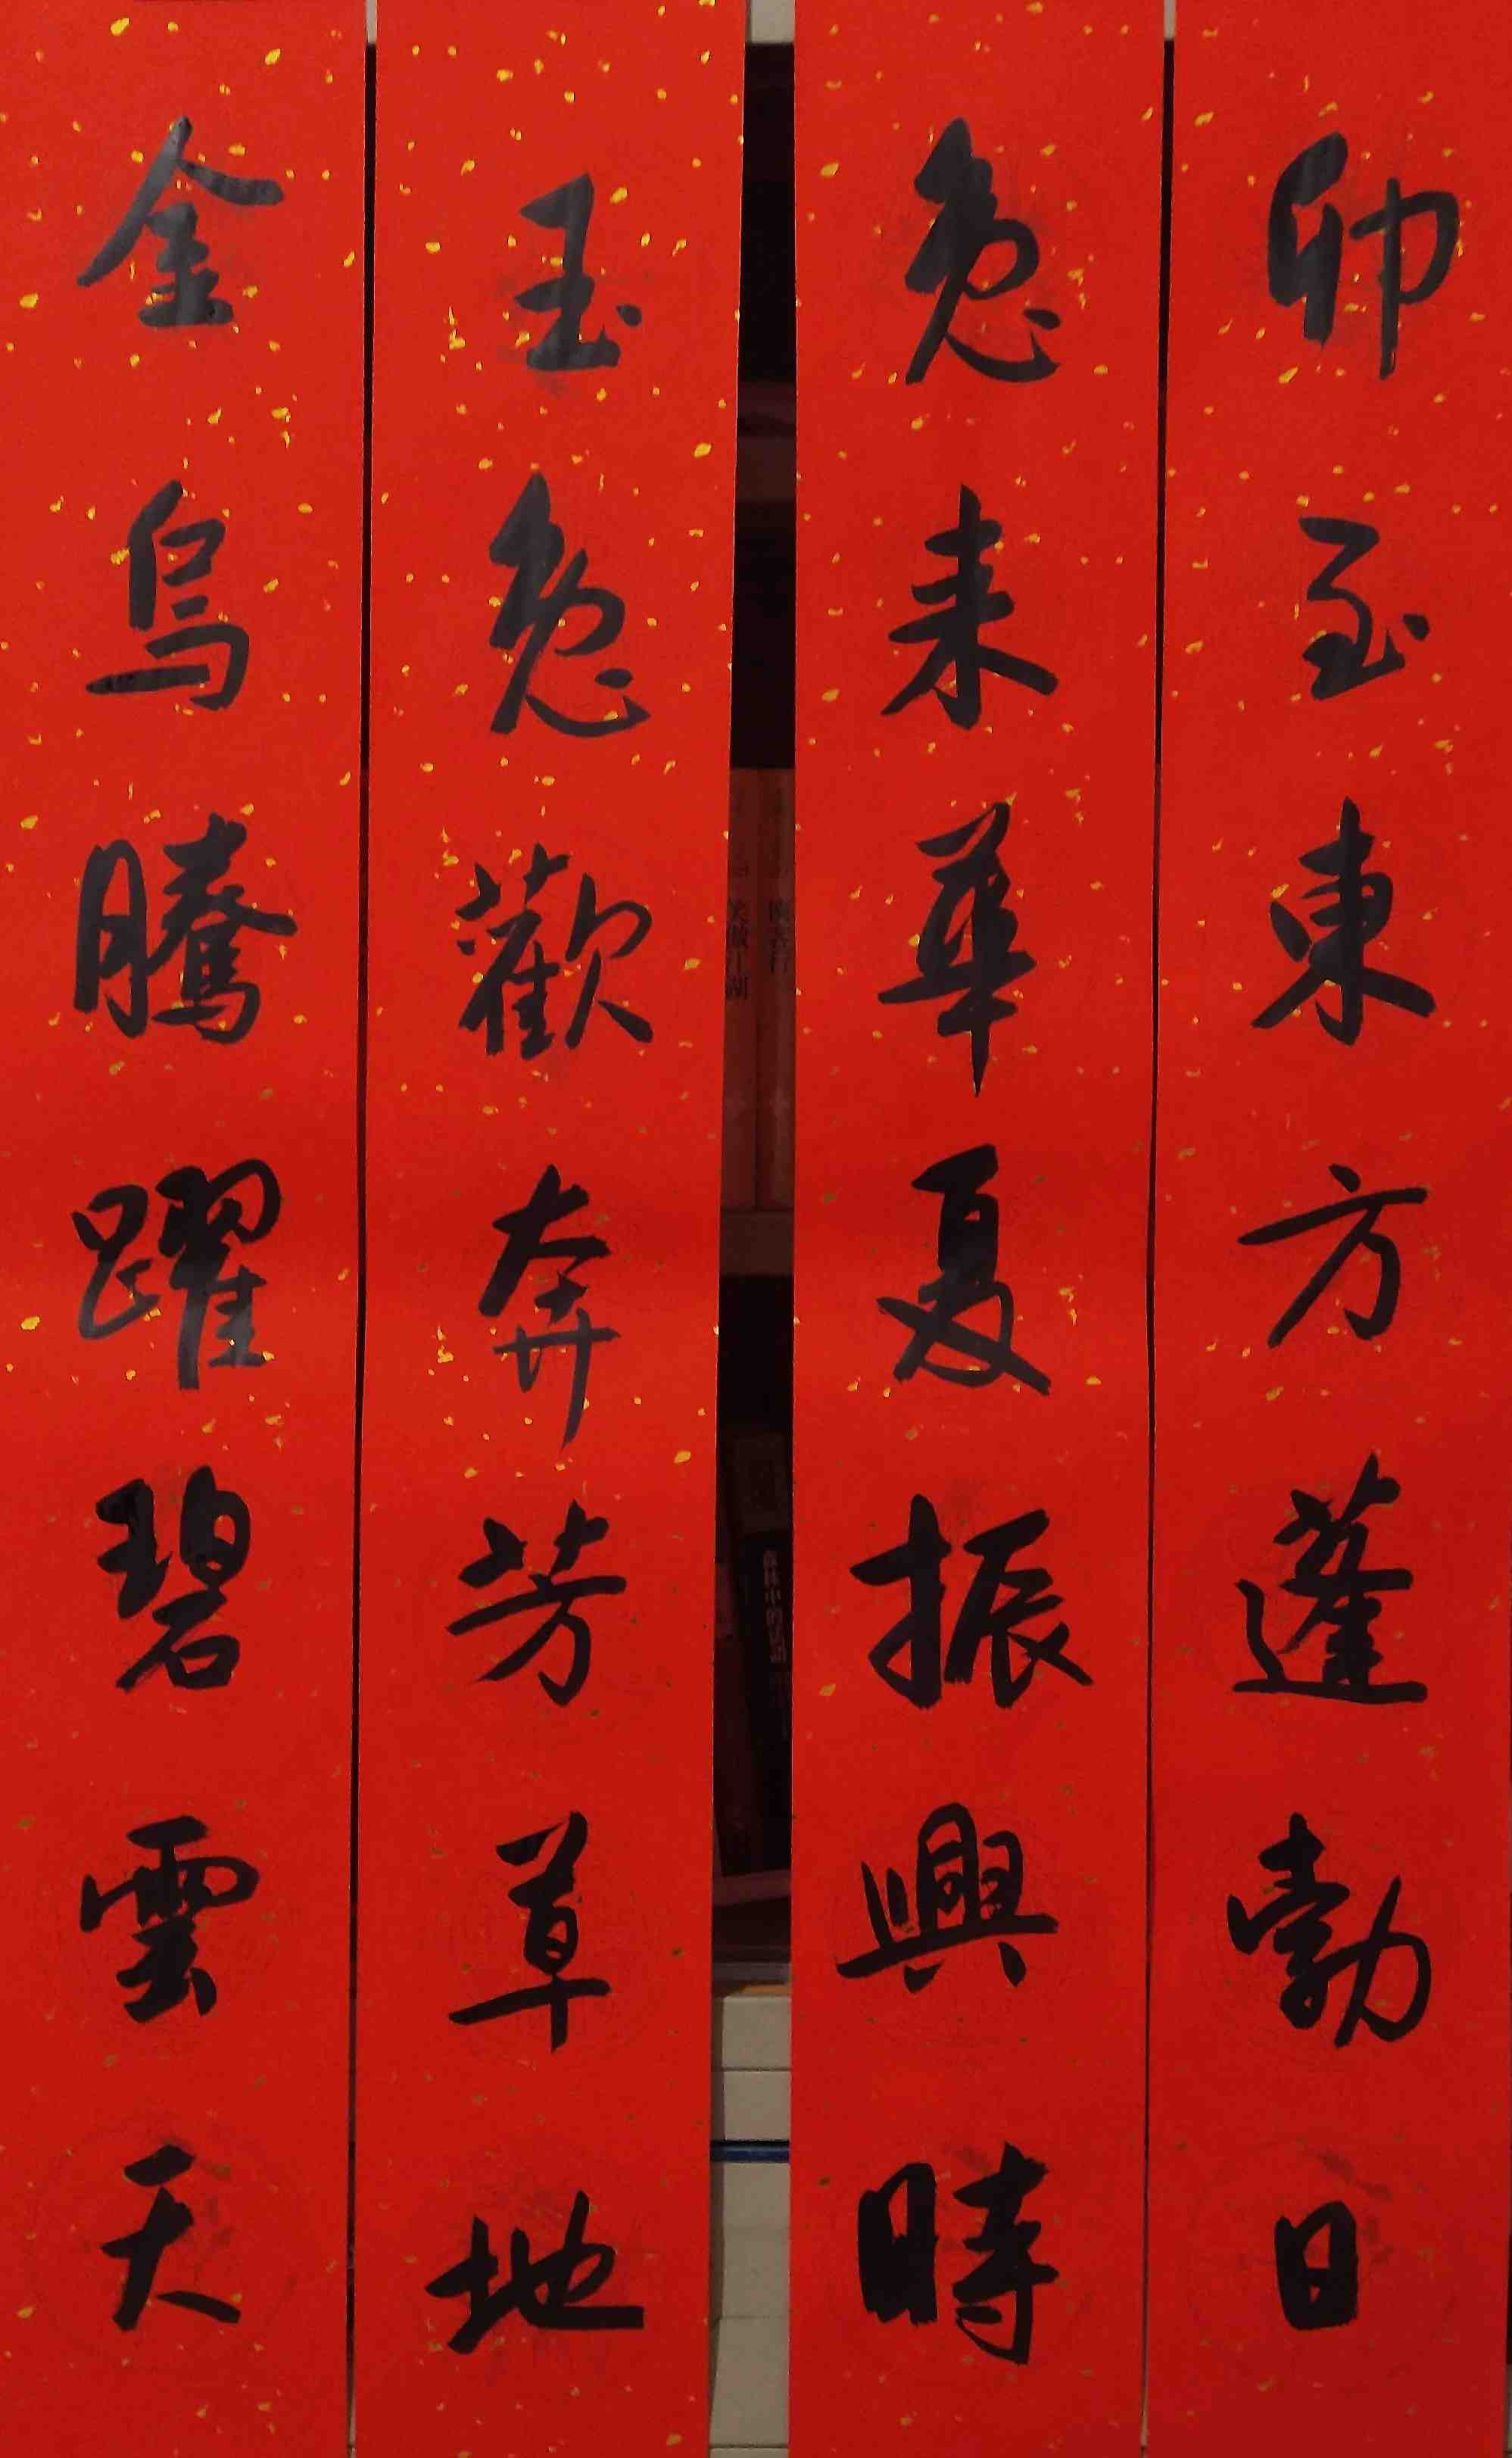 卯至東方蓬勃日
兔来華夏振興時
玉兔歡奔芳草地
金烏騰躍碧雲天
笑傲江湖